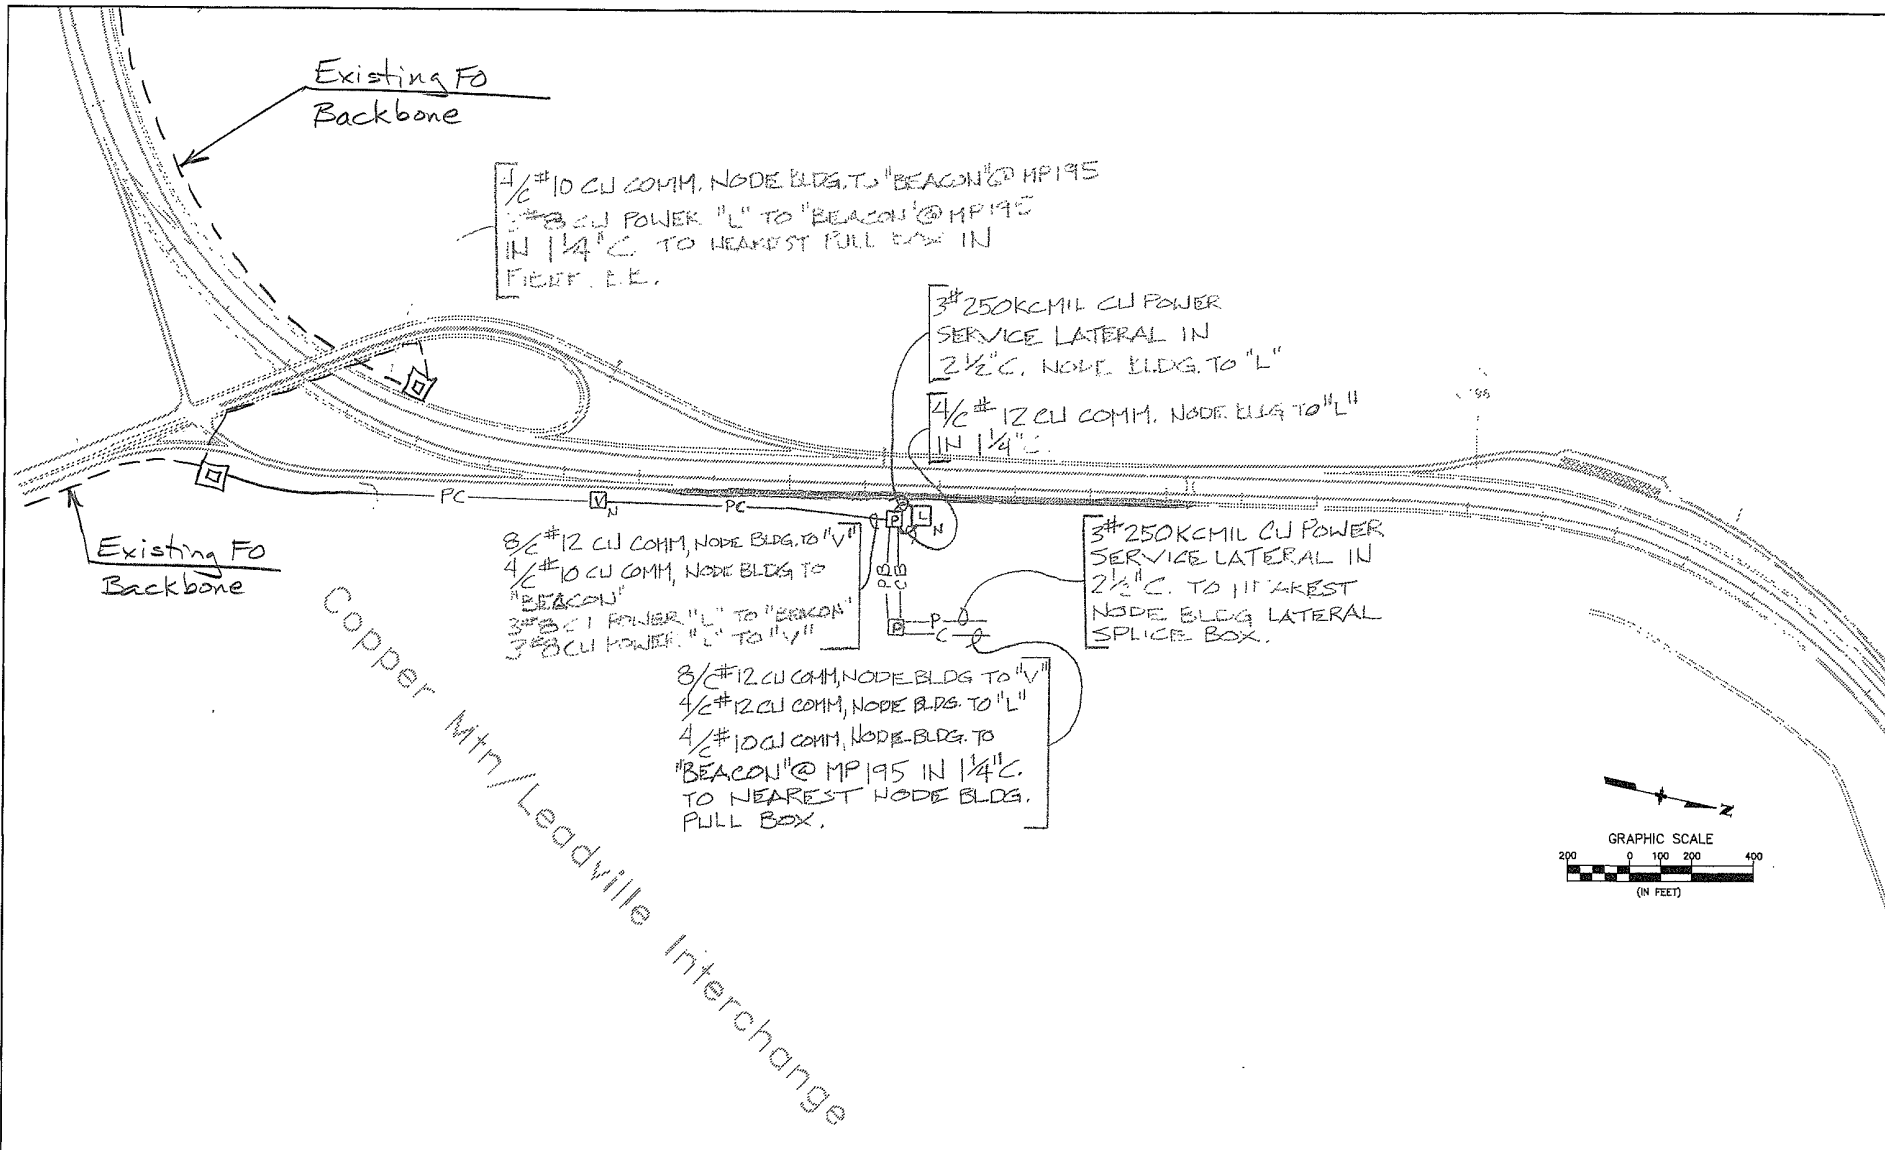 Existing FO
Backbone
4/C #10 CU COMM. NODE BLDG. TO "BEACON" @ MP195
#8 CU POWER "L" TO "BEACON" @ MP195
IN 1 1/4" C. TO NEAREST PULL BOX IN
3#250KCMIL CU POWER
SERVICE LATERAL IN
2 1/2" C. NODE BLDG. TO "L"
4/C #12 CU COMM. NODE BLDG TO "L"
IN 1 1/4" C.
PC
V
N
PC
P
L
N
Existing FO
Backbone
8/C #12 CU COMM, NODE BLDG. TO "V"
4/C #10 CU COMM, NODE BLDG TO
"BEACON"
3#8 CU POWER "L" TO "BEACON"
3#8 CU POWER "L" TO "V"
PB
CB
P
P
C
3#250KCMIL CU POWER
SERVICE LATERAL IN
2 1/2" C. TO NEAREST
NODE BLDG LATERAL
SPLICE BOX.
8/C #12 CU COMM, NODE BLDG TO "V"
4/C #12 CU COMM, NODE BLDG. TO "L"
4/C #10 CU COMM, NODE BLDG. TO
"BEACON" @ MP195 IN 1 1/4" C.
TO NEAREST NODE BLDG.
PULL BOX.
Copper Mtn/Leadville Interchange
N
GRAPHIC SCALE
200 0 100 200 400
(IN FEET)